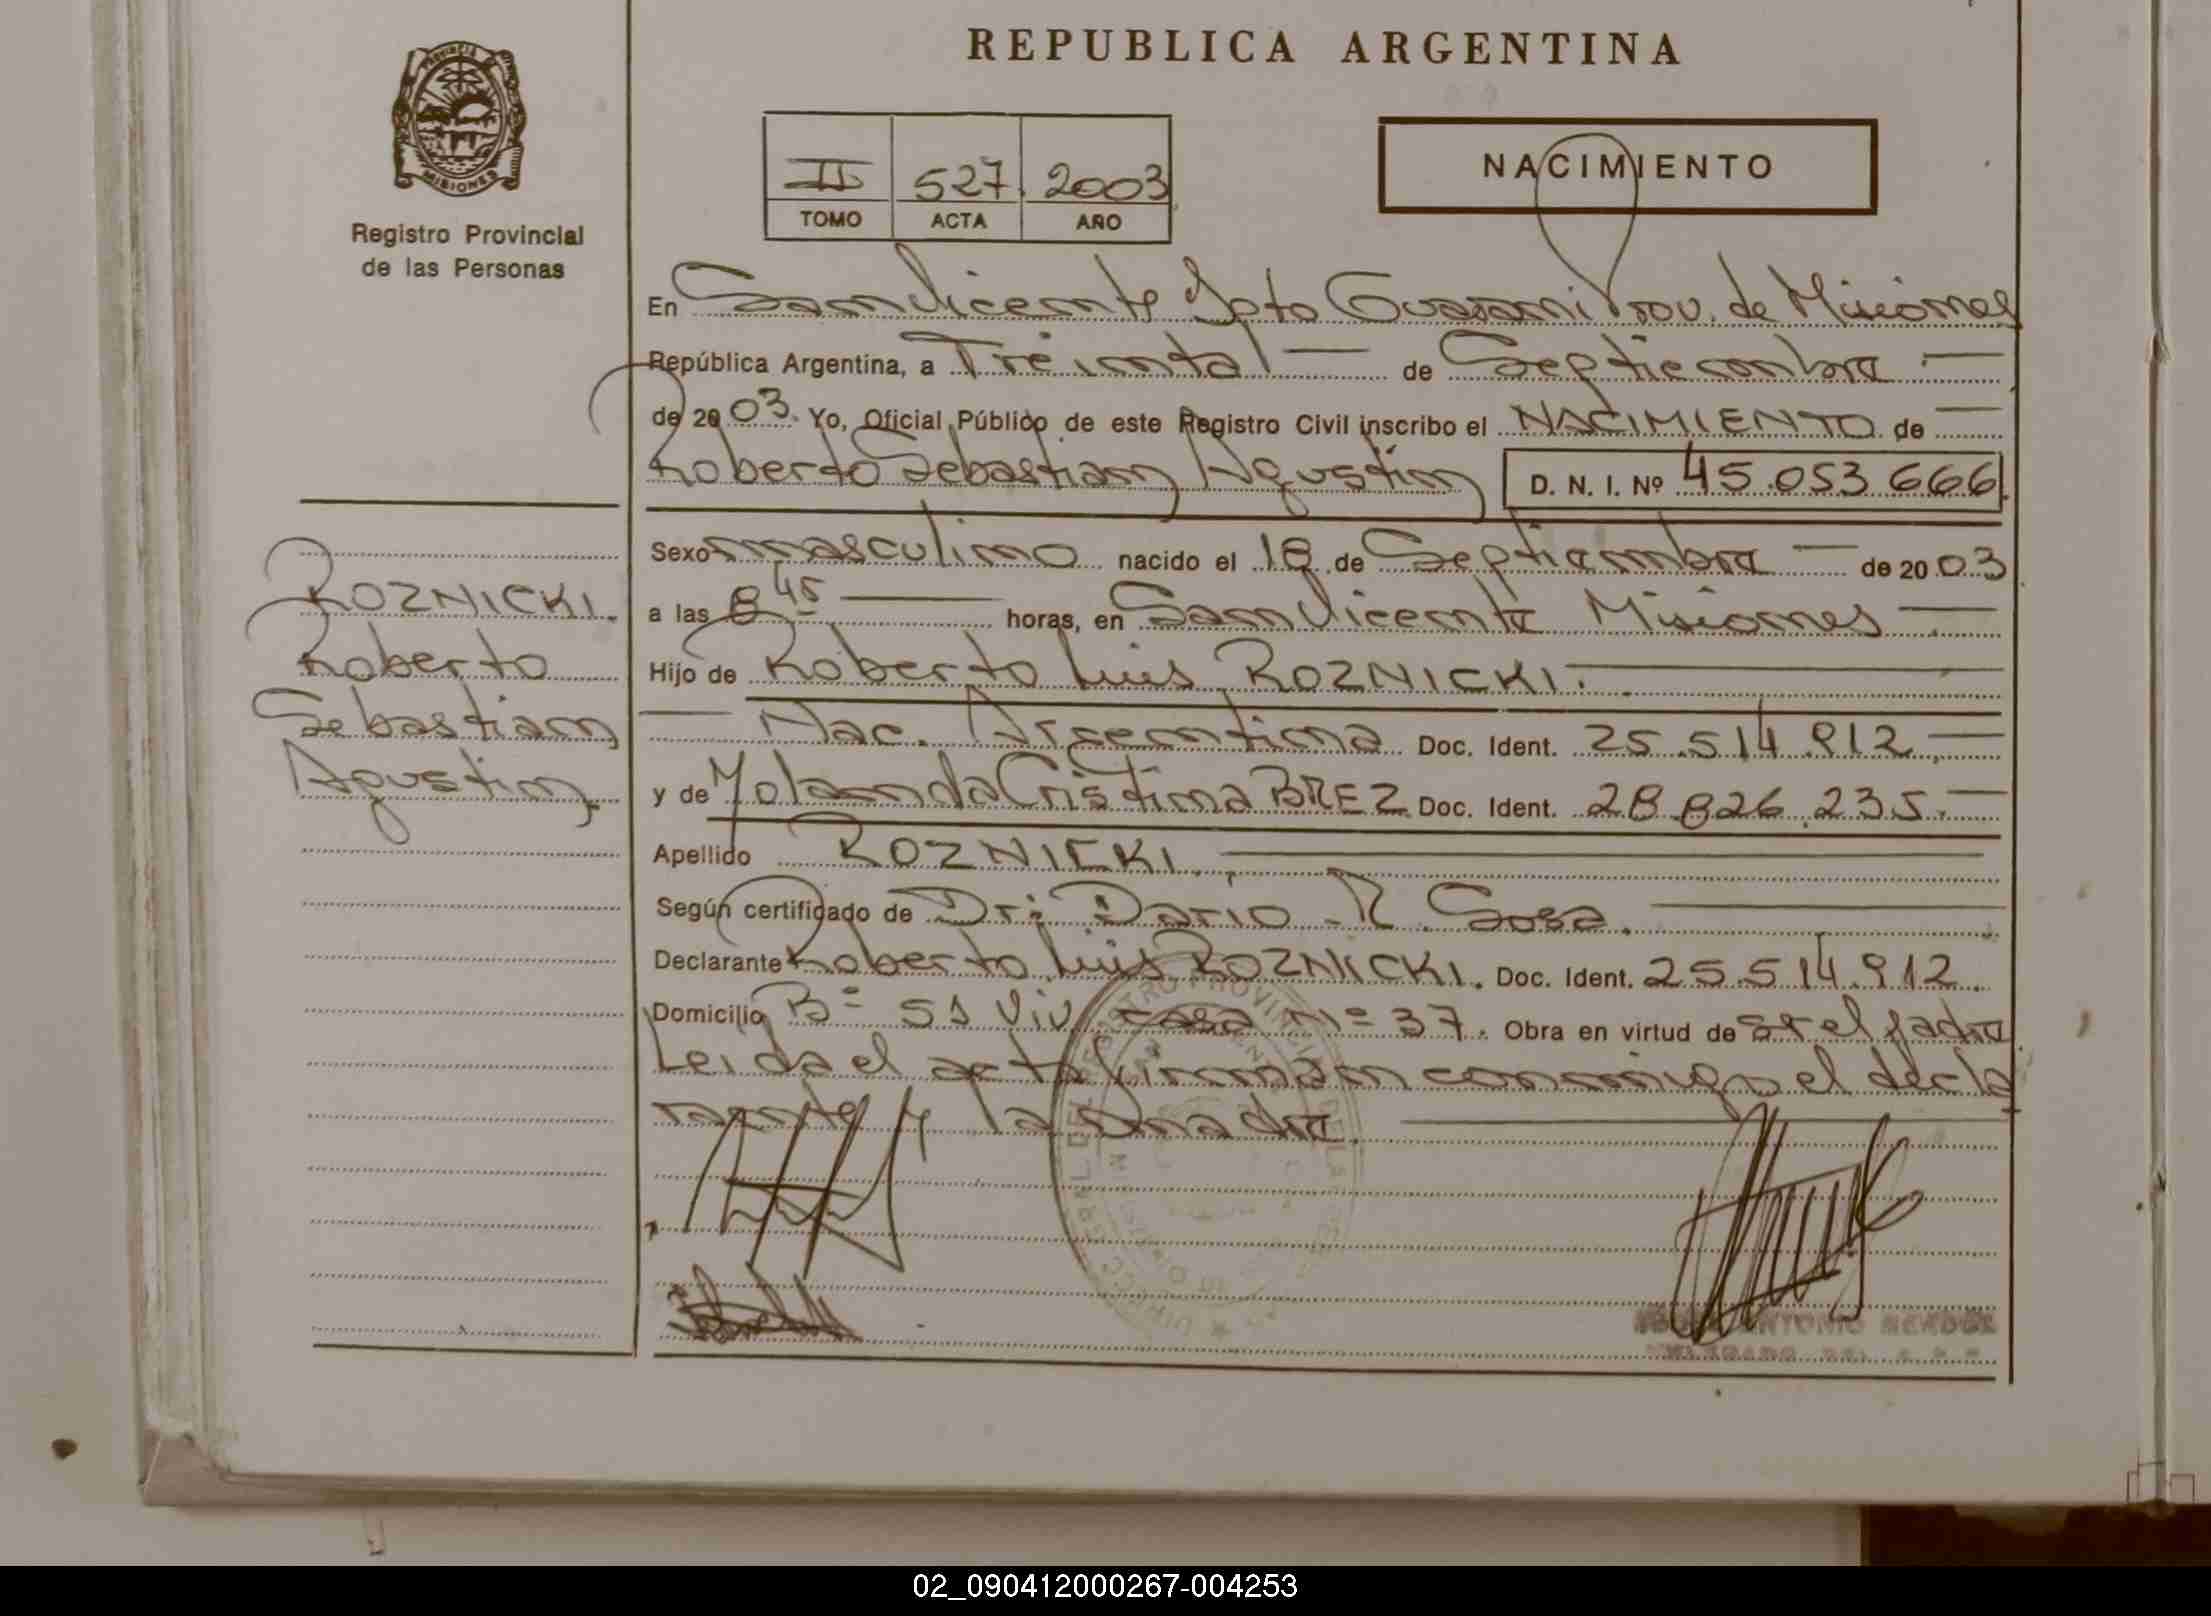 REPUBLICA ARGENTINA
PROVINCIA
MISIONES
Registro Provincial
de las Personas
II 527 2003
TOMO ACTA AÑO
NACIMIENTO
En San Vicente Dpto Guarani Prov. de Misiones
República Argentina, a Treinta de Septiembre
de 2003. Yo, Oficial Público de este Registro Civil inscribo el NACIMIENTO de
Roberto Sebastian Agustin D. N. I. Nº 45.053.666
Sexo masculino nacido el 18 de Septiembre de 2003
a las 8 45 horas, en San Vicente Misiones
Hijo de Roberto Luis ROZNICKI.
Nac. Argentina Doc. Ident. 25.514.912
y de Yolanda Cristina BREZ Doc. Ident. 28.826.235.
Apellido ROZNICKI
Según certificado de Dr: Dario R. Sosa.
Declarante Roberto Luis ROZNICKI. Doc. Ident. 25.514.912.
Domicilio Bº 51 Viv. casa Nº 37. Obra en virtud de ser el padre
Leida el acta firman conmigo el decla
rante y la madre.
ROZNICKI.
Roberto
Sebastian
Agustin
ANTONIO
02_090412000267-004253